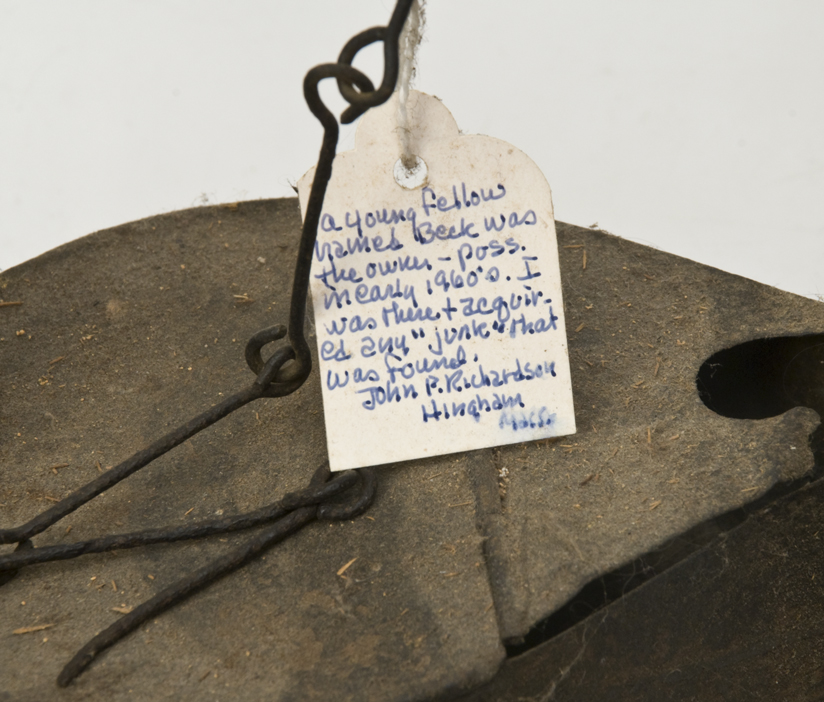 a young fellow
named Beck was
the owner - poss.
in early 1960's. I
was there + acquir-
ed any "junk" that
was found.
John P. Richardson
Hingham
Mass.